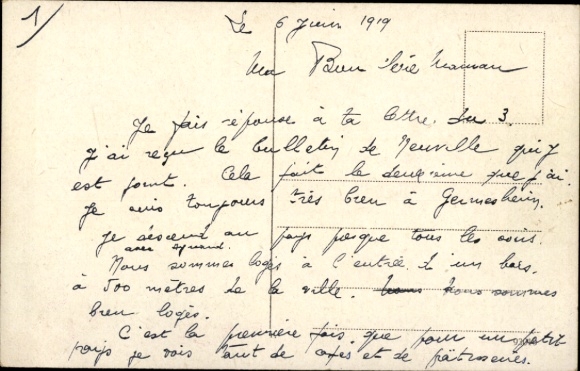 1/
Le 6 Juin 1919
Ma Bien chérie Maman
Je fais réponse à ta lettre du 3.
J'ai reçu le bulletin de Neuville qui y
est joint. Cela fait le deuxième que j'ai.
Je suis toujours très bien à Germesheim.
Je descends au pays presque tous les soirs.
avec
Nous sommes logés à l'entrée d'un bois,
à 500 mètres de la ville. nous sommes
bien logés.
C'est la première fois que pour un petit
pays je vois tant de cafés et de pâtisseries.